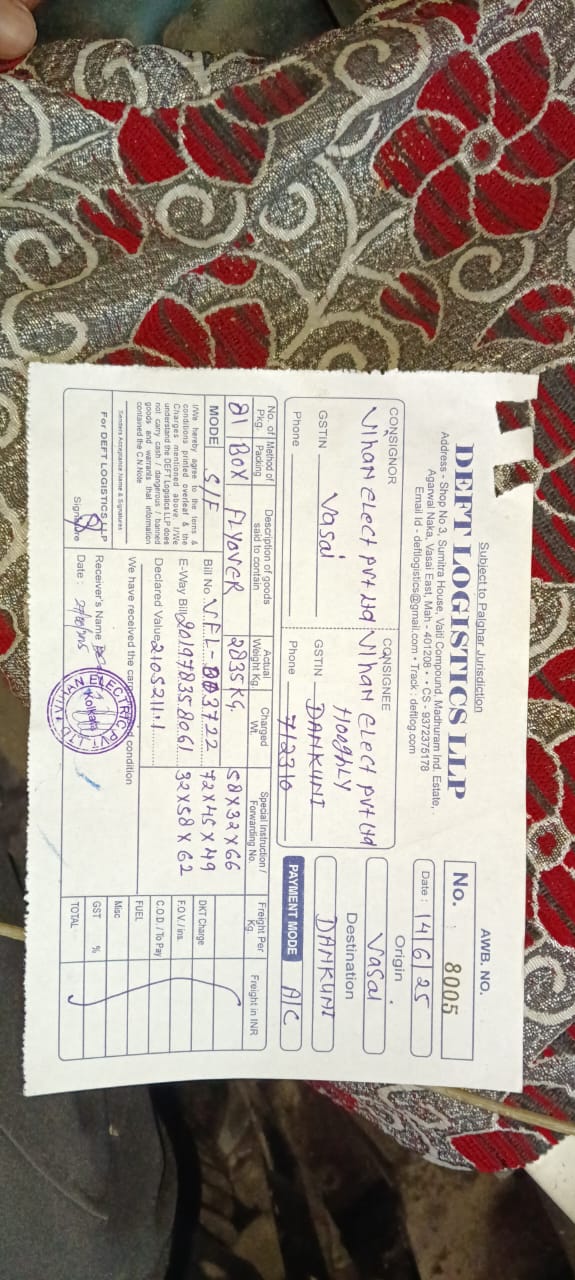 Subject to Palghar Jurisdiction
DEFT LOGISTICS LLP
Address - Shop No 3, Sumitra House, Vaiti Compound, Madhuram Ind. Estate,
Agarwal Naka, Vasai East, Mah - 401208 • • CS - 9372375178
Email Id - deftlogistics@gmail.com • Track : deftlog.com
AWB. NO.
No. 8005
Date : 14/6/25
CONSIGNOR
Vihan Elect pvt Ltd
Vasai
GSTIN
Phone
CONSIGNEE
Vihan Elect pvt Ltd
HooghLY
GSTIN DANKUNI
Phone 712310
Origin
Vasai
Destination
DANKUNI
PAYMENT MODE A/C
No. of Pkg. Method of Packing Description of goods said to contain Actual Weight Kg. Charged Wt. Special Instruction / Forwarding No. Freight Per Kg. Freight in INR
81 BOX FLYOVER 2835 KG 58X32X66
72X45X49
32X58X62
MODE S/F
Bill No. VEL-003722
E-Way Bill 201978358061
Declared Value 2105211.1
I/We hereby agree to the terms &
conditions printed overleaf & the
Charges mentioned above. I/We
understand the DEFT Logistics LLP does
not carry cash / dangerous / banned
goods and warrants that information
contained the C.N Note
Senders Acceptance Name & Signatures
For DEFT LOGISTICS LLP
Signature
We have received the condition
Receiver's Name
Date :
ELECTRIC PVT. LTD
Kolkata
DKT Charge
F.O.V. / Ins.
C.O.D. / To Pay
FUEL
Misc
GST %
TOTAL